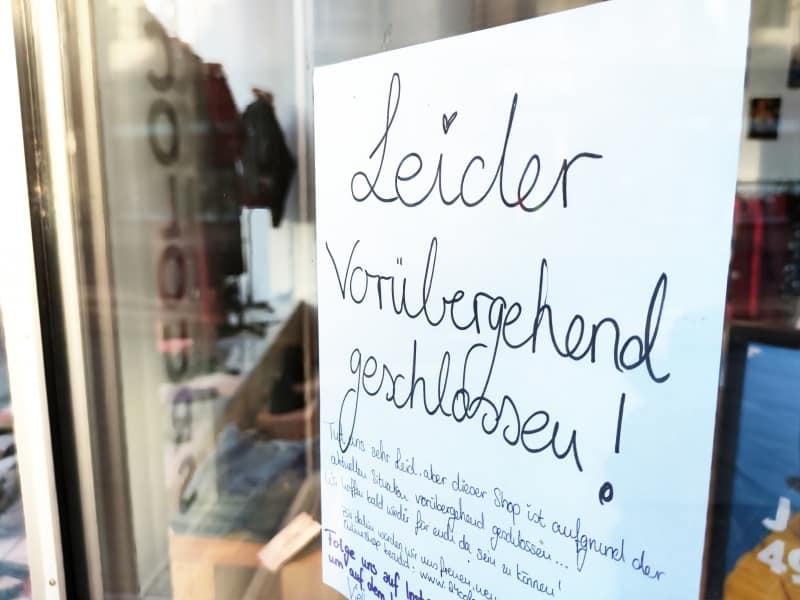 Leider
Vorübergehend
geschlossen!
Tut uns sehr Leid, aber dieser Shop ist aufgrund der
aktuellen Situation vorübergehend geschlossen...
Wir hoffen bald wieder für euch da sein zu können!
Bis dahin würden wir uns freuen, wenn
Onlineshop besucht: www.
Folge uns auf Inst
um auf dem
J
49